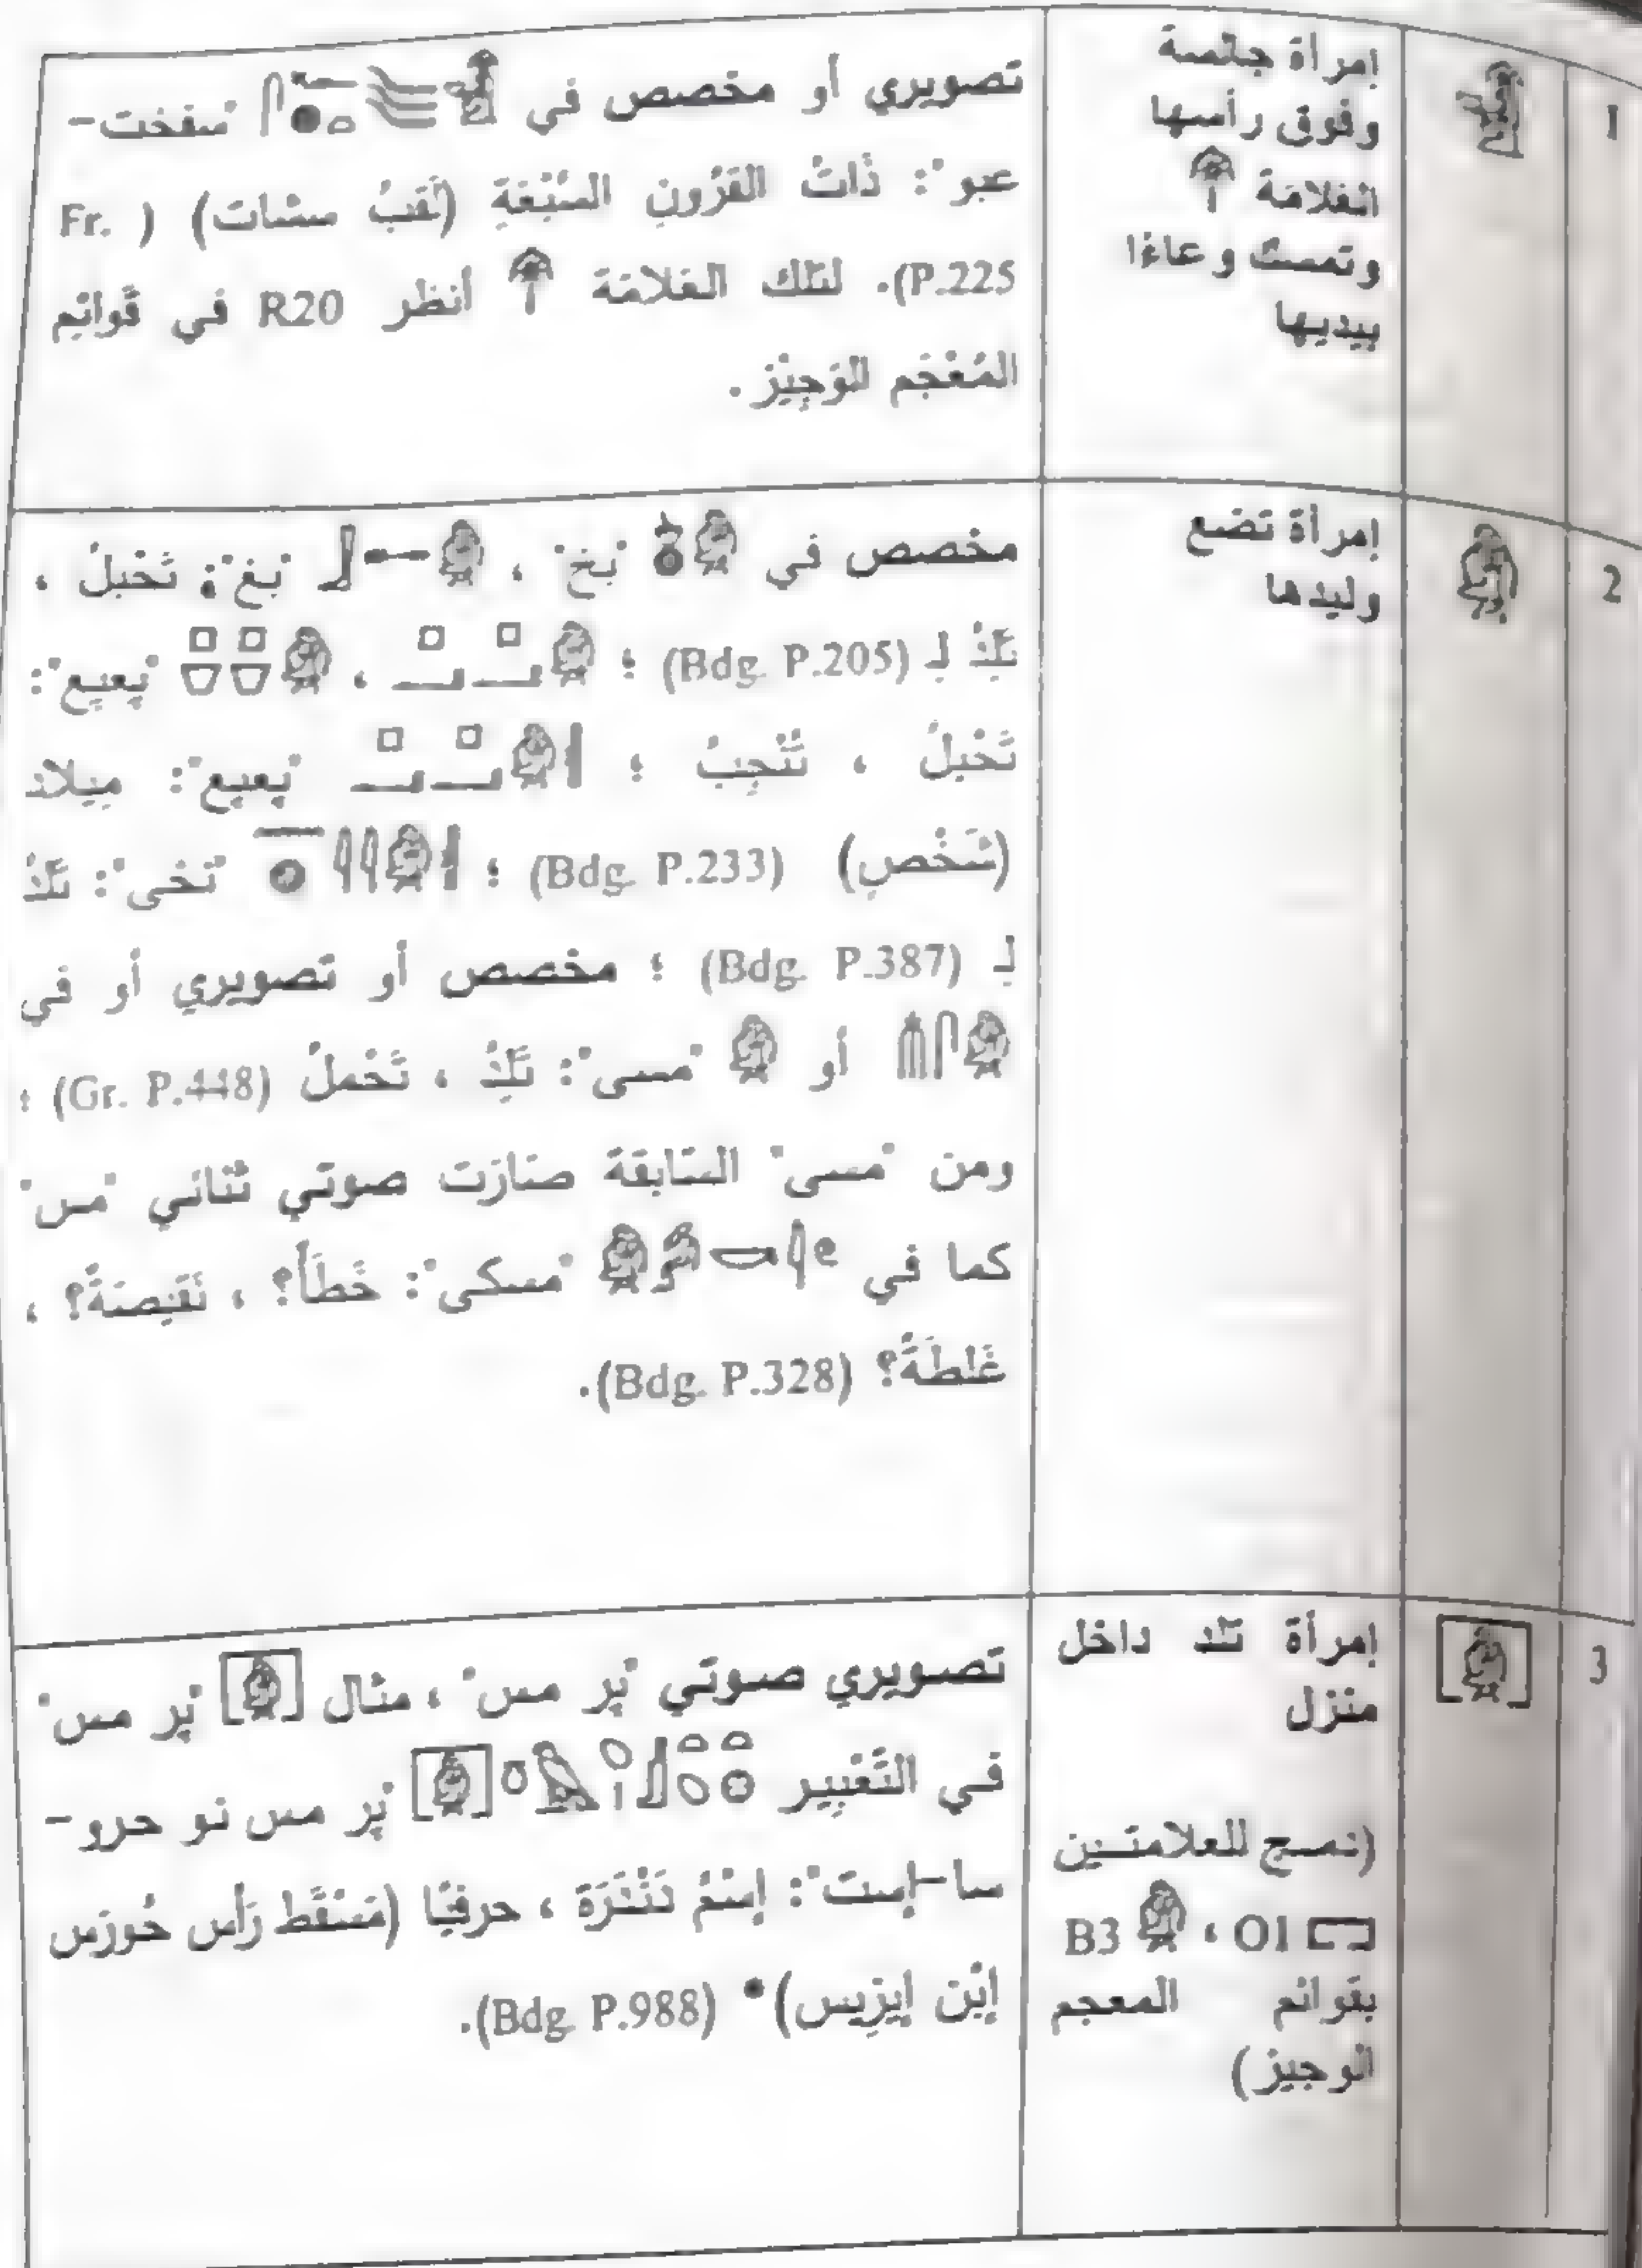 1
إمرأة جالسة
وفوق رأسها
العلامة
وتمسك وعاءا
بيديها
تصويري أو مخصص في "سفخت-
عبو": ذَاتُ القرُونِ السَّبْعَةِ (لَقَبُ سشات) ( Fr.
P.225). لتلك العلامَة أنظر R20 في قَوائِم
المُعْجَم الوَجِيْز.
2
إمرأة تضع
وليدها
مخصص في "بخ" ، "بغ": تَحْبَلُ ،
تَلِدُ لِـ (Bdg. P.205) ؛ ، "پعپع":
تَحْبَلُ ، تُنْجِبُ ؛ "پعپع": مِيلاد
(شَخْصٍ) (Bdg. P.233) ؛ "نخى": تَلدُ
لِـ (Bdg. P.387) ؛ مخصص أو تصويري أو في
أو "مسى": تَلِدُ ، تَحْملُ (Gr. P.448) ؛
ومن "مسى" السَّابقة صَارَت صوتي ثنائي "مس"
كما في "مسكى": خَطَأ؟ ، نَقِيصَةً؟ ،
غَلطَةً؟ (Bdg. P.328).
3
إمرأة تلد داخل
منزل
(دمج للعلامتين
O1 ، B3
بقوائم المعجم
الوجيز)
تصويري صوتي "پر مس" ، مثال "پر مس"
في التَّعْبِير "پر مس نو حرو-
سا-إست": إسْمُ دَنْدَرَة ، حرفيًا (مَسْقَط رَأْس حُورَس
إبْن إيزِيس)* (Bdg. P.988).